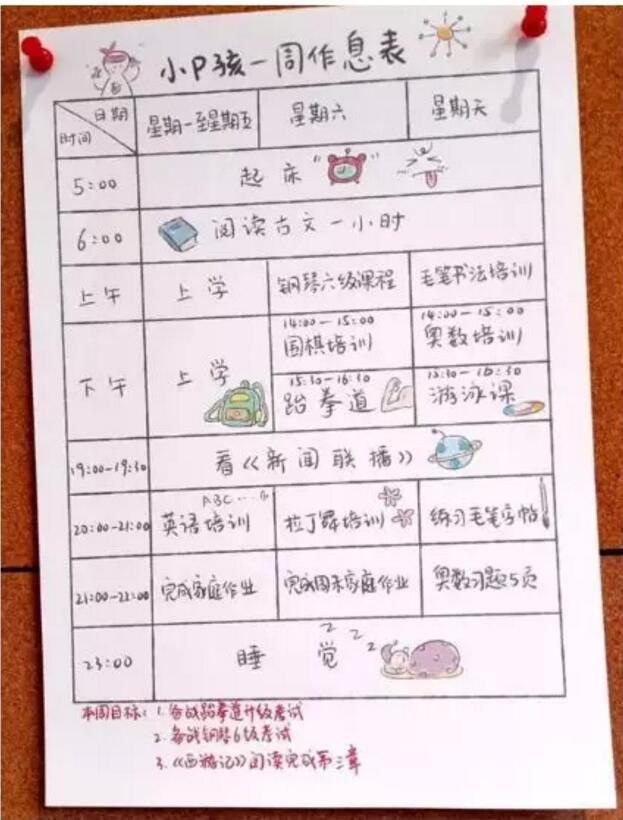 小P孩一周作息表
日期
时间
星期一至星期五 星期六 星期天
5:00 起床
6:00 阅读古文一小时
上午 上学 钢琴六级课程 毛笔书法培训
下午 上学
14:00-15:00 14:00-15:00
围棋培训 奥数培训
15:30-16:30 15:30-16:30
跆拳道 游泳课
19:00-19:30 看《新闻联播》
ABC...
20:00-21:00 英语培训 拉丁舞培训 练习毛笔字帖
21:00-22:00 完成家庭作业 完成周末家庭作业 奥数习题5页
23:00 睡觉 z z z
本周目标: 1. 备战跆拳道升级考试
2. 备战钢琴6级考试
3.《西游记》阅读完成第三章